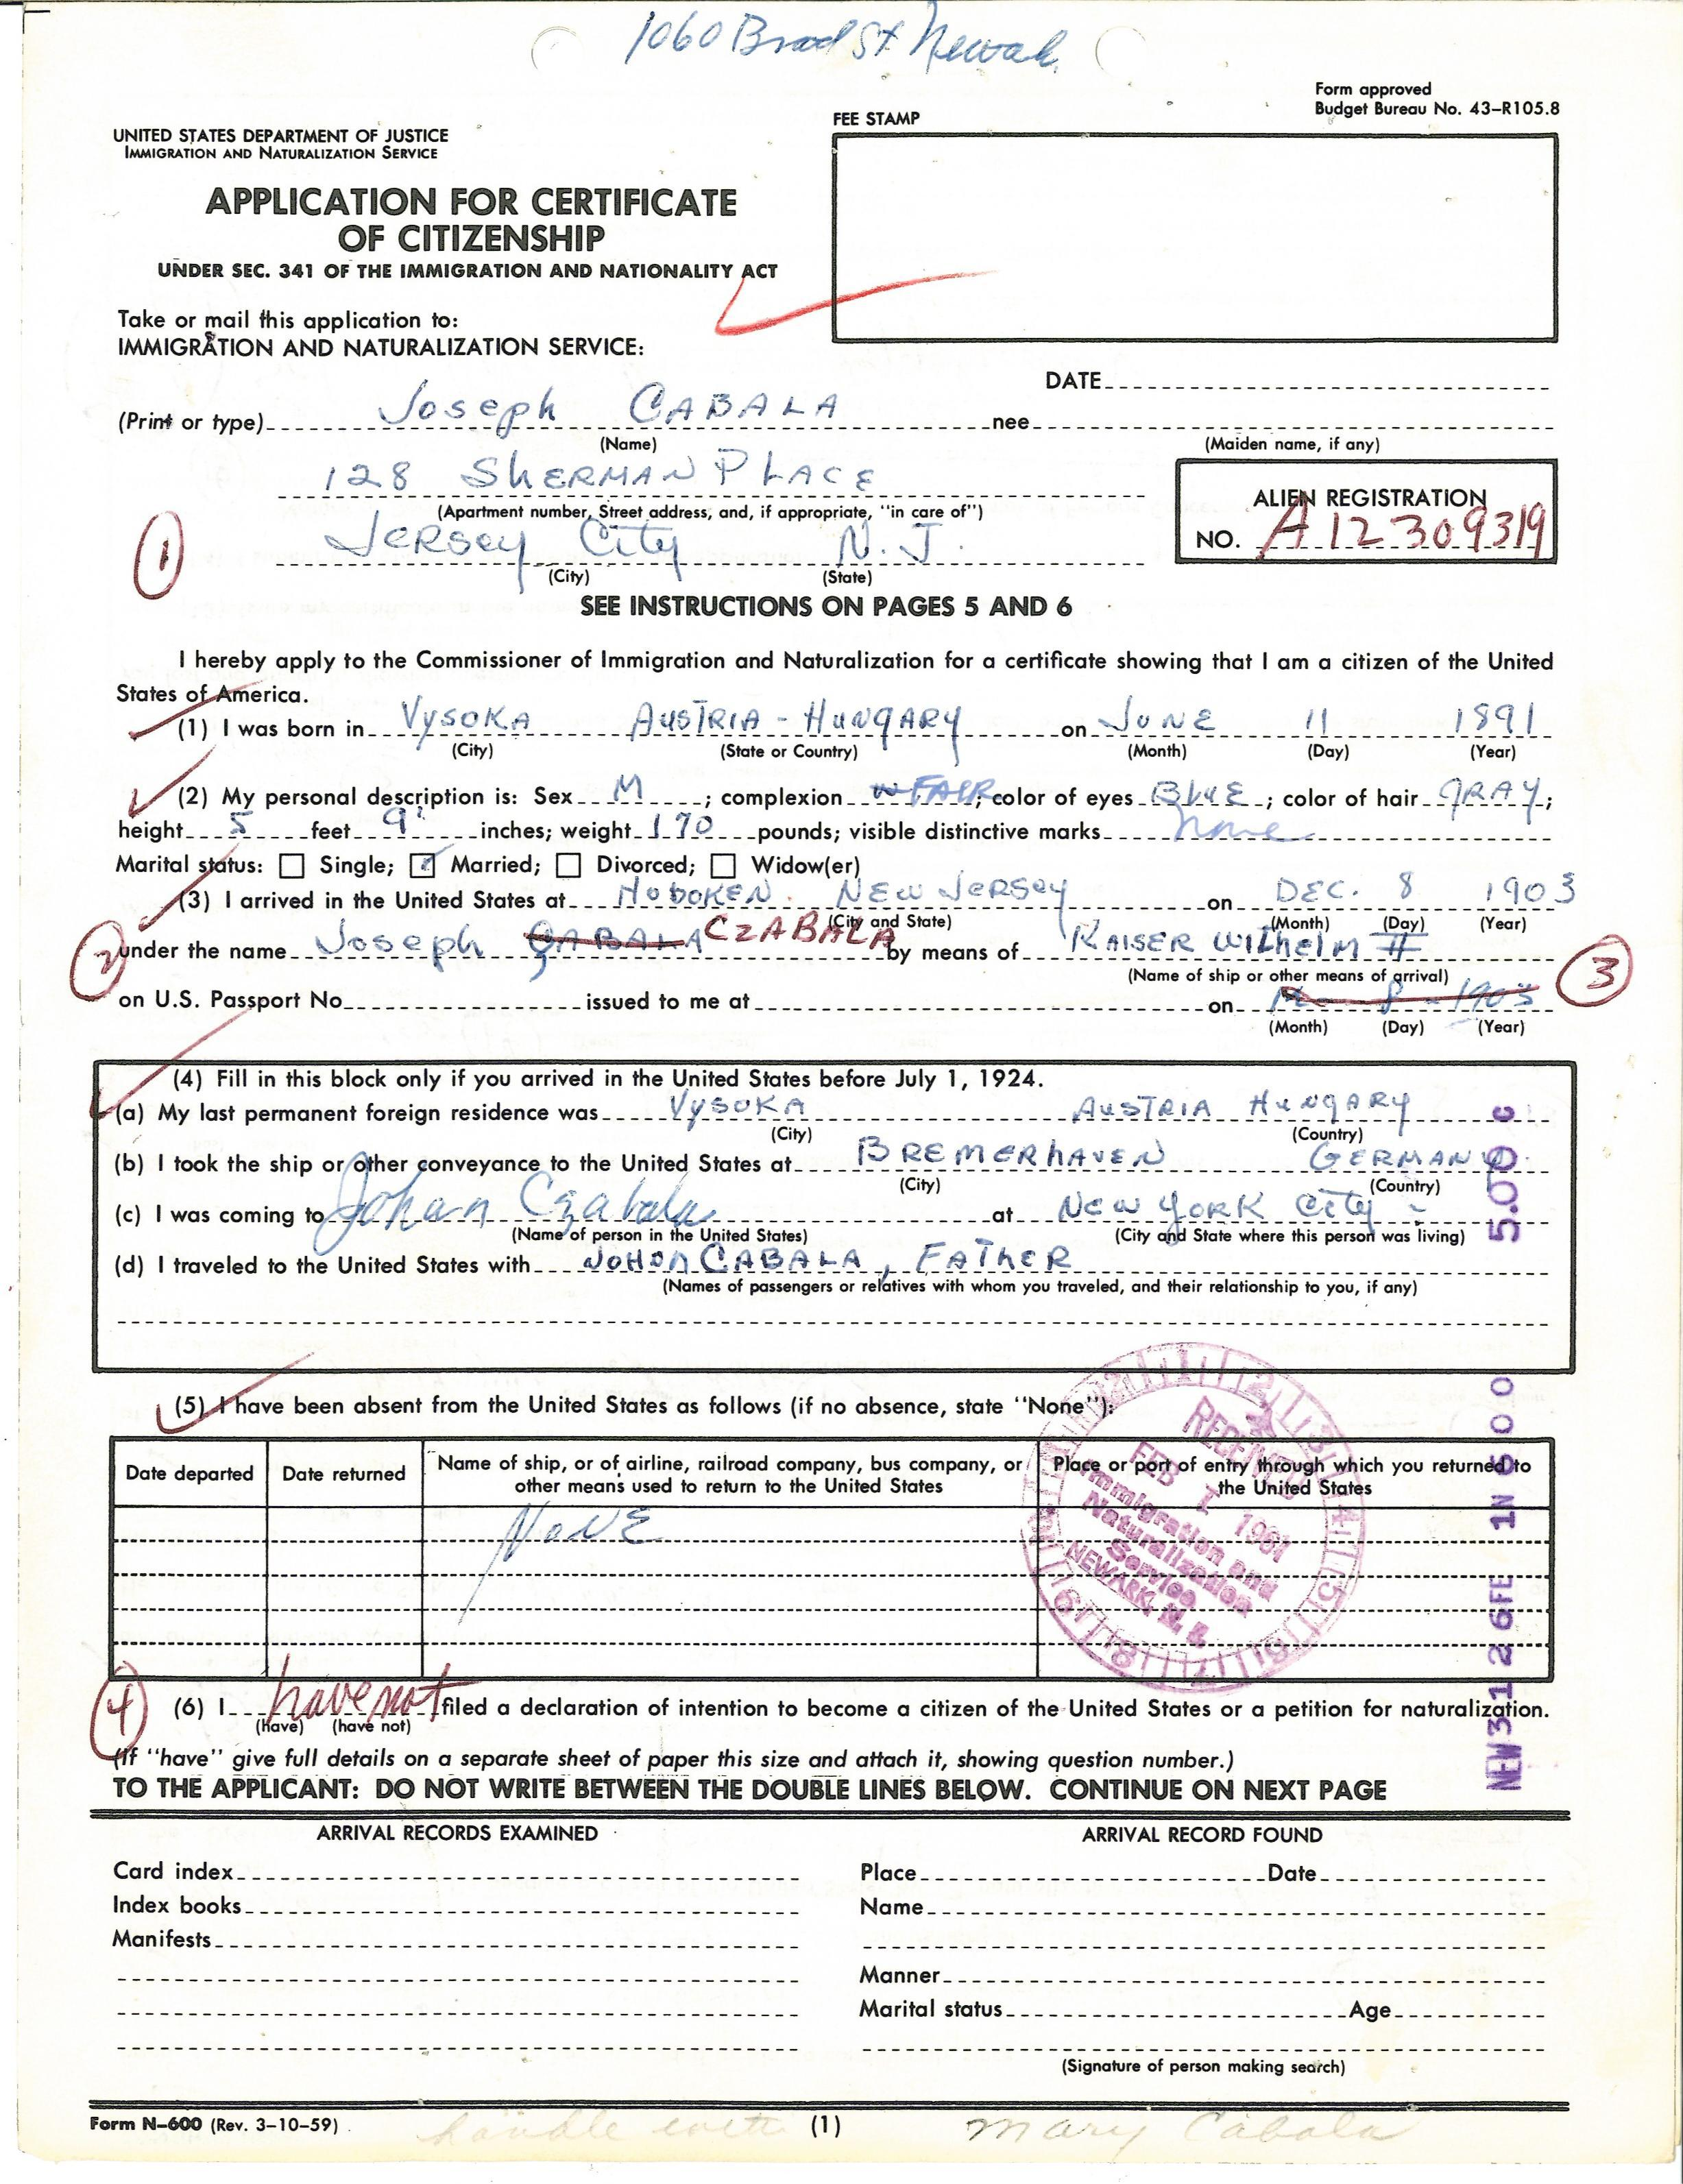 1060 Broad St Newark
Form approved
Budget Bureau No. 43-R105.8
FEE STAMP
UNITED STATES DEPARTMENT OF JUSTICE
IMMIGRATION AND NATURALIZATION SERVICE
APPLICATION FOR CERTIFICATE
OF CITIZENSHIP
UNDER SEC. 341 OF THE IMMIGRATION AND NATIONALITY ACT
Take or mail this application to:
IMMIGRATION AND NATURALIZATION SERVICE:
DATE
(Print or type) Joseph CABALA nee
(Name) (Maiden name, if any)
128 SHERMAN PLACE
(Apartment number, Street address, and, if appropriate, "in care of")
ALIEN REGISTRATION
NO. A12 309319
1
Jersey City N.J.
(City) (State)
SEE INSTRUCTIONS ON PAGES 5 AND 6
I hereby apply to the Commissioner of Immigration and Naturalization for a certificate showing that I am a citizen of the United
States of America.
(1) I was born in VYSOKA AUSTRIA - HUNGARY on JUNE 11 1891
(City) (State or Country) (Month) (Day) (Year)
(2) My personal description is: Sex M; complexion FAIR; color of eyes BLUE; color of hair GRAY;
height 5 feet 9" inches; weight 170 pounds; visible distinctive marks none
Marital status: Single; Married; Divorced; Widow(er)
(3) I arrived in the United States at HOBOKEN. NEW JERSEY on DEC. 8 1903
(City and State) (Month) (Day) (Year)
2 under the name Joseph CABALA CZABALA by means of KAISER WILHELM II
(Name of ship or other means of arrival)
3
on U.S. Passport No. issued to me at on 8 - 1903
(Month) (Day) (Year)
(4) Fill in this block only if you arrived in the United States before July 1, 1924.
(a) My last permanent foreign residence was VYSOKA AUSTRIA HUNGARY
(City) (Country)
(b) I took the ship or other conveyance to the United States at BREMERHAVEN GERMANY.
(City) (Country)
(c) I was coming to Johan Czabala at NEW YORK City -
(Name of person in the United States) (City and State where this person was living)
(d) I traveled to the United States with JOHON CABALA, FATHER
(Names of passengers or relatives with whom you traveled, and their relationship to you, if any)
(5) I have been absent from the United States as follows (if no absence, state "None"):
Date departed Date returned Name of ship, or of airline, railroad company, bus company, or other means used to return to the United States Place or port of entry through which you returned to the United States
NONE
RECEIVED
FEB 1 1961
Immigration and
Naturalization
Service
NEWARK, N. J.
NEW 3 1 2 6FE 1N 6 0 0 5.00 C
4
(6) I have not filed a declaration of intention to become a citizen of the United States or a petition for naturalization.
(have) (have not)
(If "have" give full details on a separate sheet of paper this size and attach it, showing question number.)
TO THE APPLICANT: DO NOT WRITE BETWEEN THE DOUBLE LINES BELOW. CONTINUE ON NEXT PAGE
ARRIVAL RECORDS EXAMINED ARRIVAL RECORD FOUND
Card index Place Date
Index books Name
Manifests
Manner
Marital status Age
(Signature of person making search)
Form N-600 (Rev. 3-10-59) handle with (1) Mary Cabala